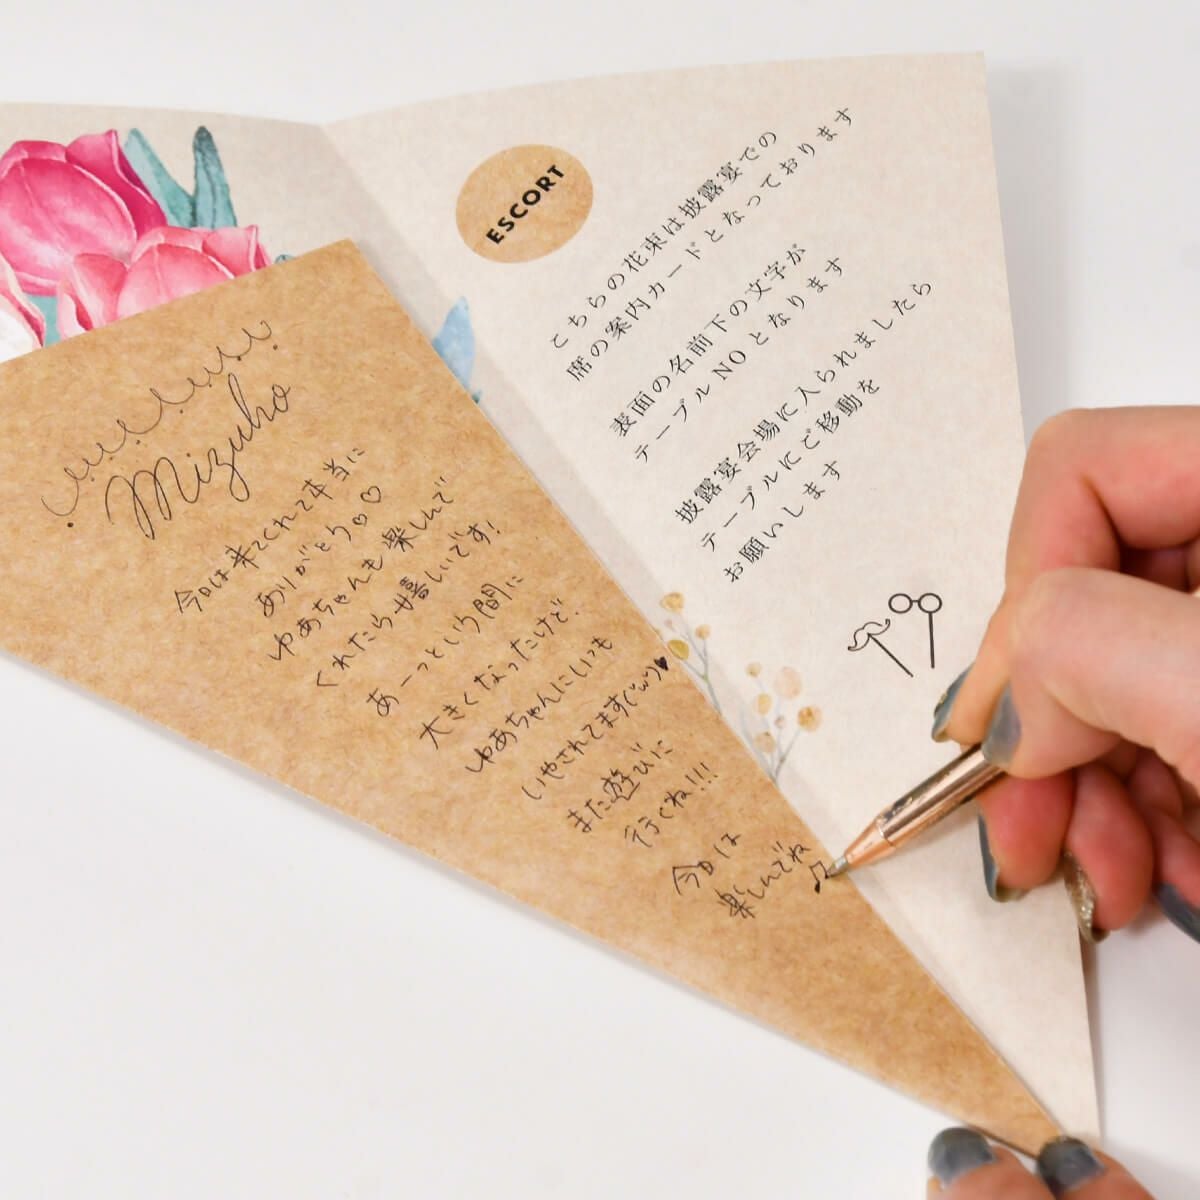 Mizuho
今日は来てくれて本当に
ありがとう♡♡
ゆあちゃんも楽しんで
くれたら嬉しいです!
あーっという間に
大きくなったけど、
ゆあちゃんにいつも
いやされてます(´ω`)♥
また遊びに
行くね!!!
今日は
楽しんでね♫
ESCORT
こちらの花束は披露宴での
席の案内カードとなっております
表面の名前下の文字が
テーブルNOとなります
披露宴会場に入られましたら
テーブルにご移動を
お願いします